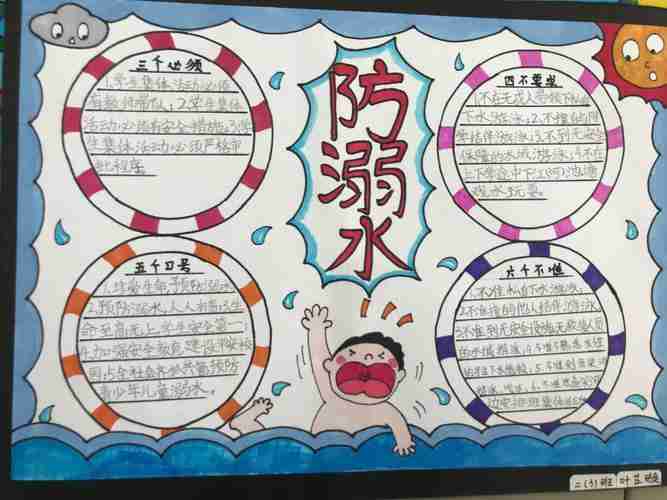 防溺水
三个必须
1.学生集体活动必须
有教师带队;2.学生集体
活动必须有安全措施;3.学
生集体活动必须严格审
批程序。
四不要求
1.不在无成人带领下私自
下水游泳;2.不擅自
学结伴游泳;3.不到无安全
保障的水域游泳;4.不在
上下学途中下江(河)池塘
戏水玩耍。
五个口号
1.珍爱生命,预防溺水
2.预防溺水,人人有责;3.生
命至高无上,学生安全第一;
4.加强安全教育,建设平安校
园;5.全社会齐参共管预防
青少年儿童溺水。
六个不准
1.不准私自下水游泳;
2.不准擅自与他人结伴游泳;
3.不准到无安全设施无救援人员
的水域游泳
二(3)班